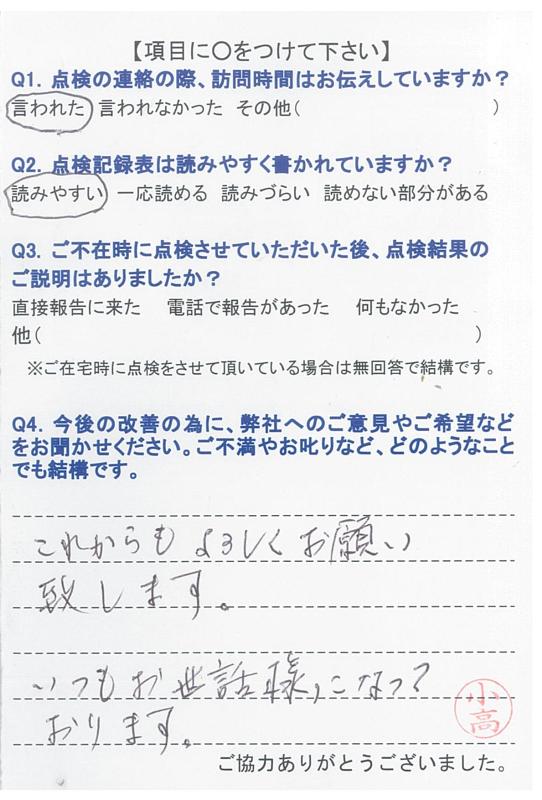 【項目に〇をつけて下さい】
Q1. 点検の連絡の際、訪問時間はお伝えしていますか？
言われた 言われなかった その他( )
Q2. 点検記録表は読みやすく書かれていますか？
読みやすい 一応読める 読みづらい 読めない部分がある
Q3. ご不在時に点検させていただいた後、点検結果の
ご説明はありましたか？
直接報告に来た 電話で報告があった 何もなかった
他( )
※ご在宅時に点検をさせて頂いている場合は無回答で結構です。
Q4. 今後の改善の為に、弊社へのご意見やご希望など
をお聞かせください。ご不満やお叱りなど、どのようなこと
でも結構です。
これからもよろしくお願い
致します。
いつもお世話様になって
おります。
小高
ご協力ありがとうございました。